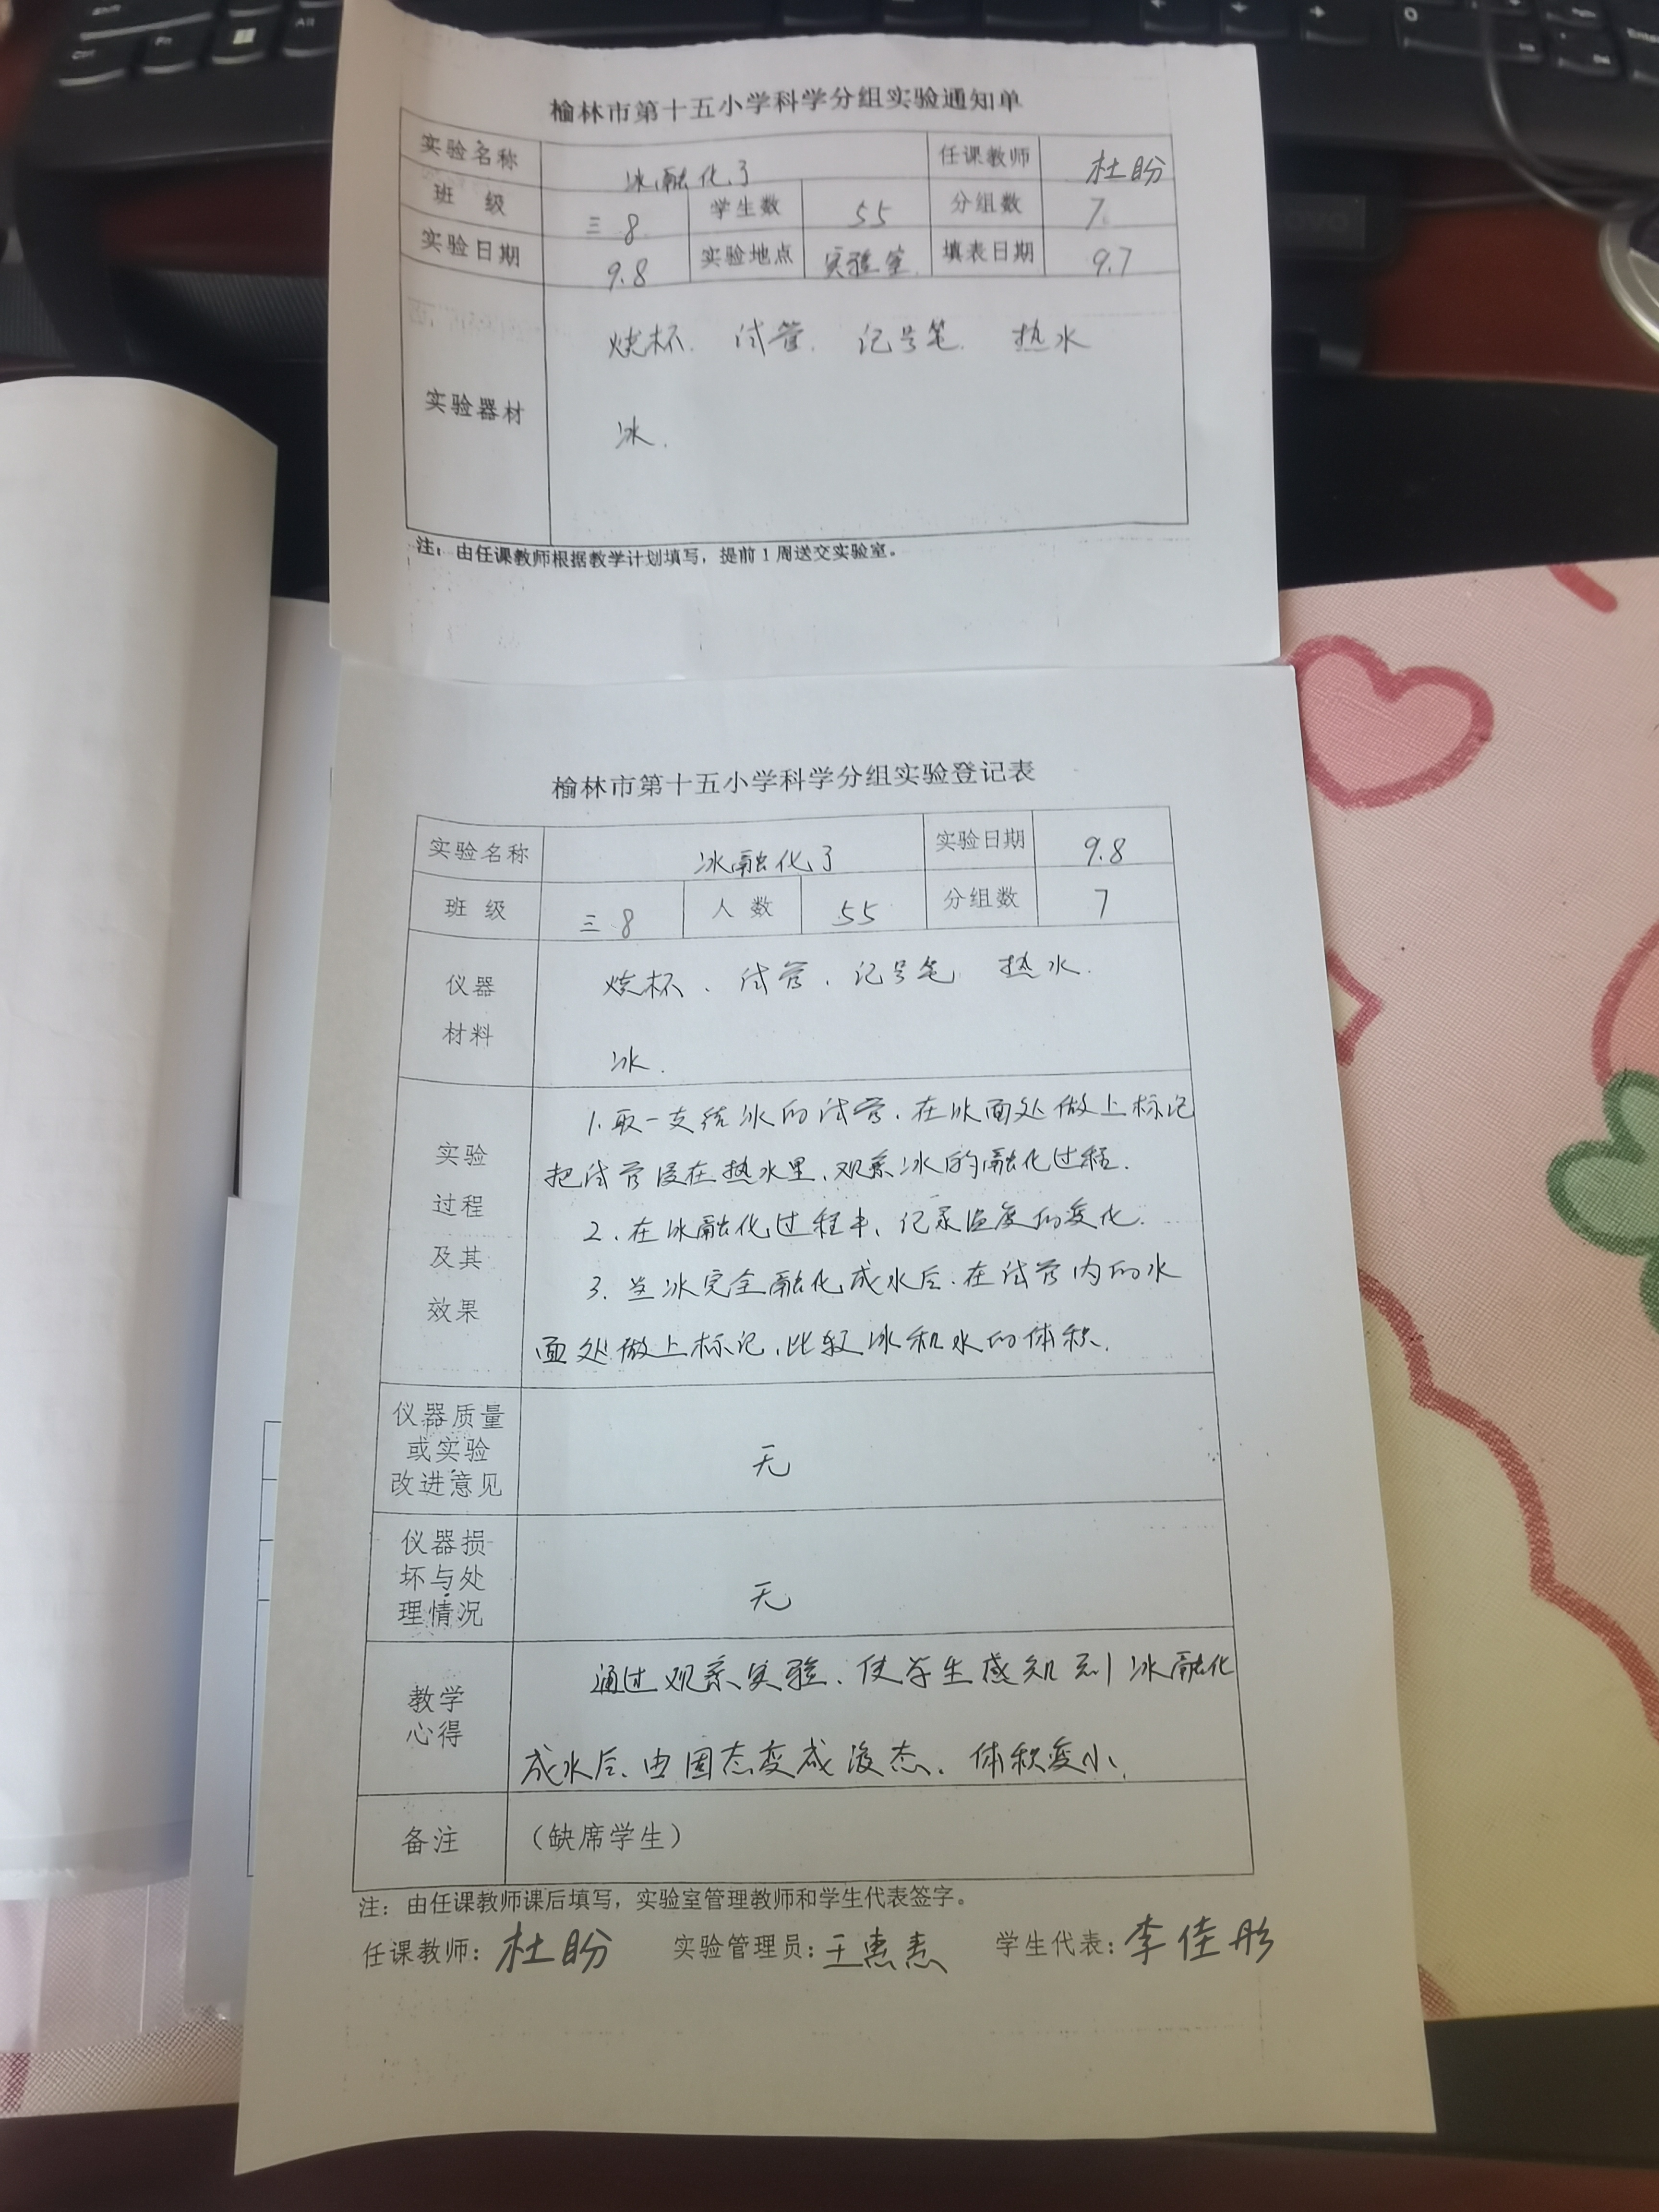 榆林市第十五小学科学分组实验通知单
实验名称 冰融化了 任课教师 杜盼
班 级 三8 学生数 55 分组数 7
实验日期 9.8 实验地点 实验室 填表日期 9.7
实验器材 烧杯、试管、记号笔、热水
冰.
注：由任课教师根据教学计划填写，提前1周送交实验室。
榆林市第十五小学科学分组实验登记表
实验名称 冰融化了 实验日期 9.8
班 级 三8 人 数 55 分组数 7
仪器 烧杯、试管、记号笔 热水.
材料
冰.
1.取一支结冰的试管.在冰面处做上标记
实验
把试管浸在热水里、观察冰的融化过程.
过程
2.在冰融化过程中、记录温度的变化.
及其
3.当冰完全融化成水后.在试管内的水
效果
面处做上标记、比较冰和水的体积.
仪器质量
或实验
改进意见 无
仪器损
坏与处
理情况 无
通过观察实验、使学生感知到冰融化
教学
心得
成水后、由固态变成液态、体积变小.
备注 （缺席学生）
注：由任课教师课后填写，实验室管理教师和学生代表签字。
任课教师：杜盼 实验管理员：王 学生代表：李佳彤